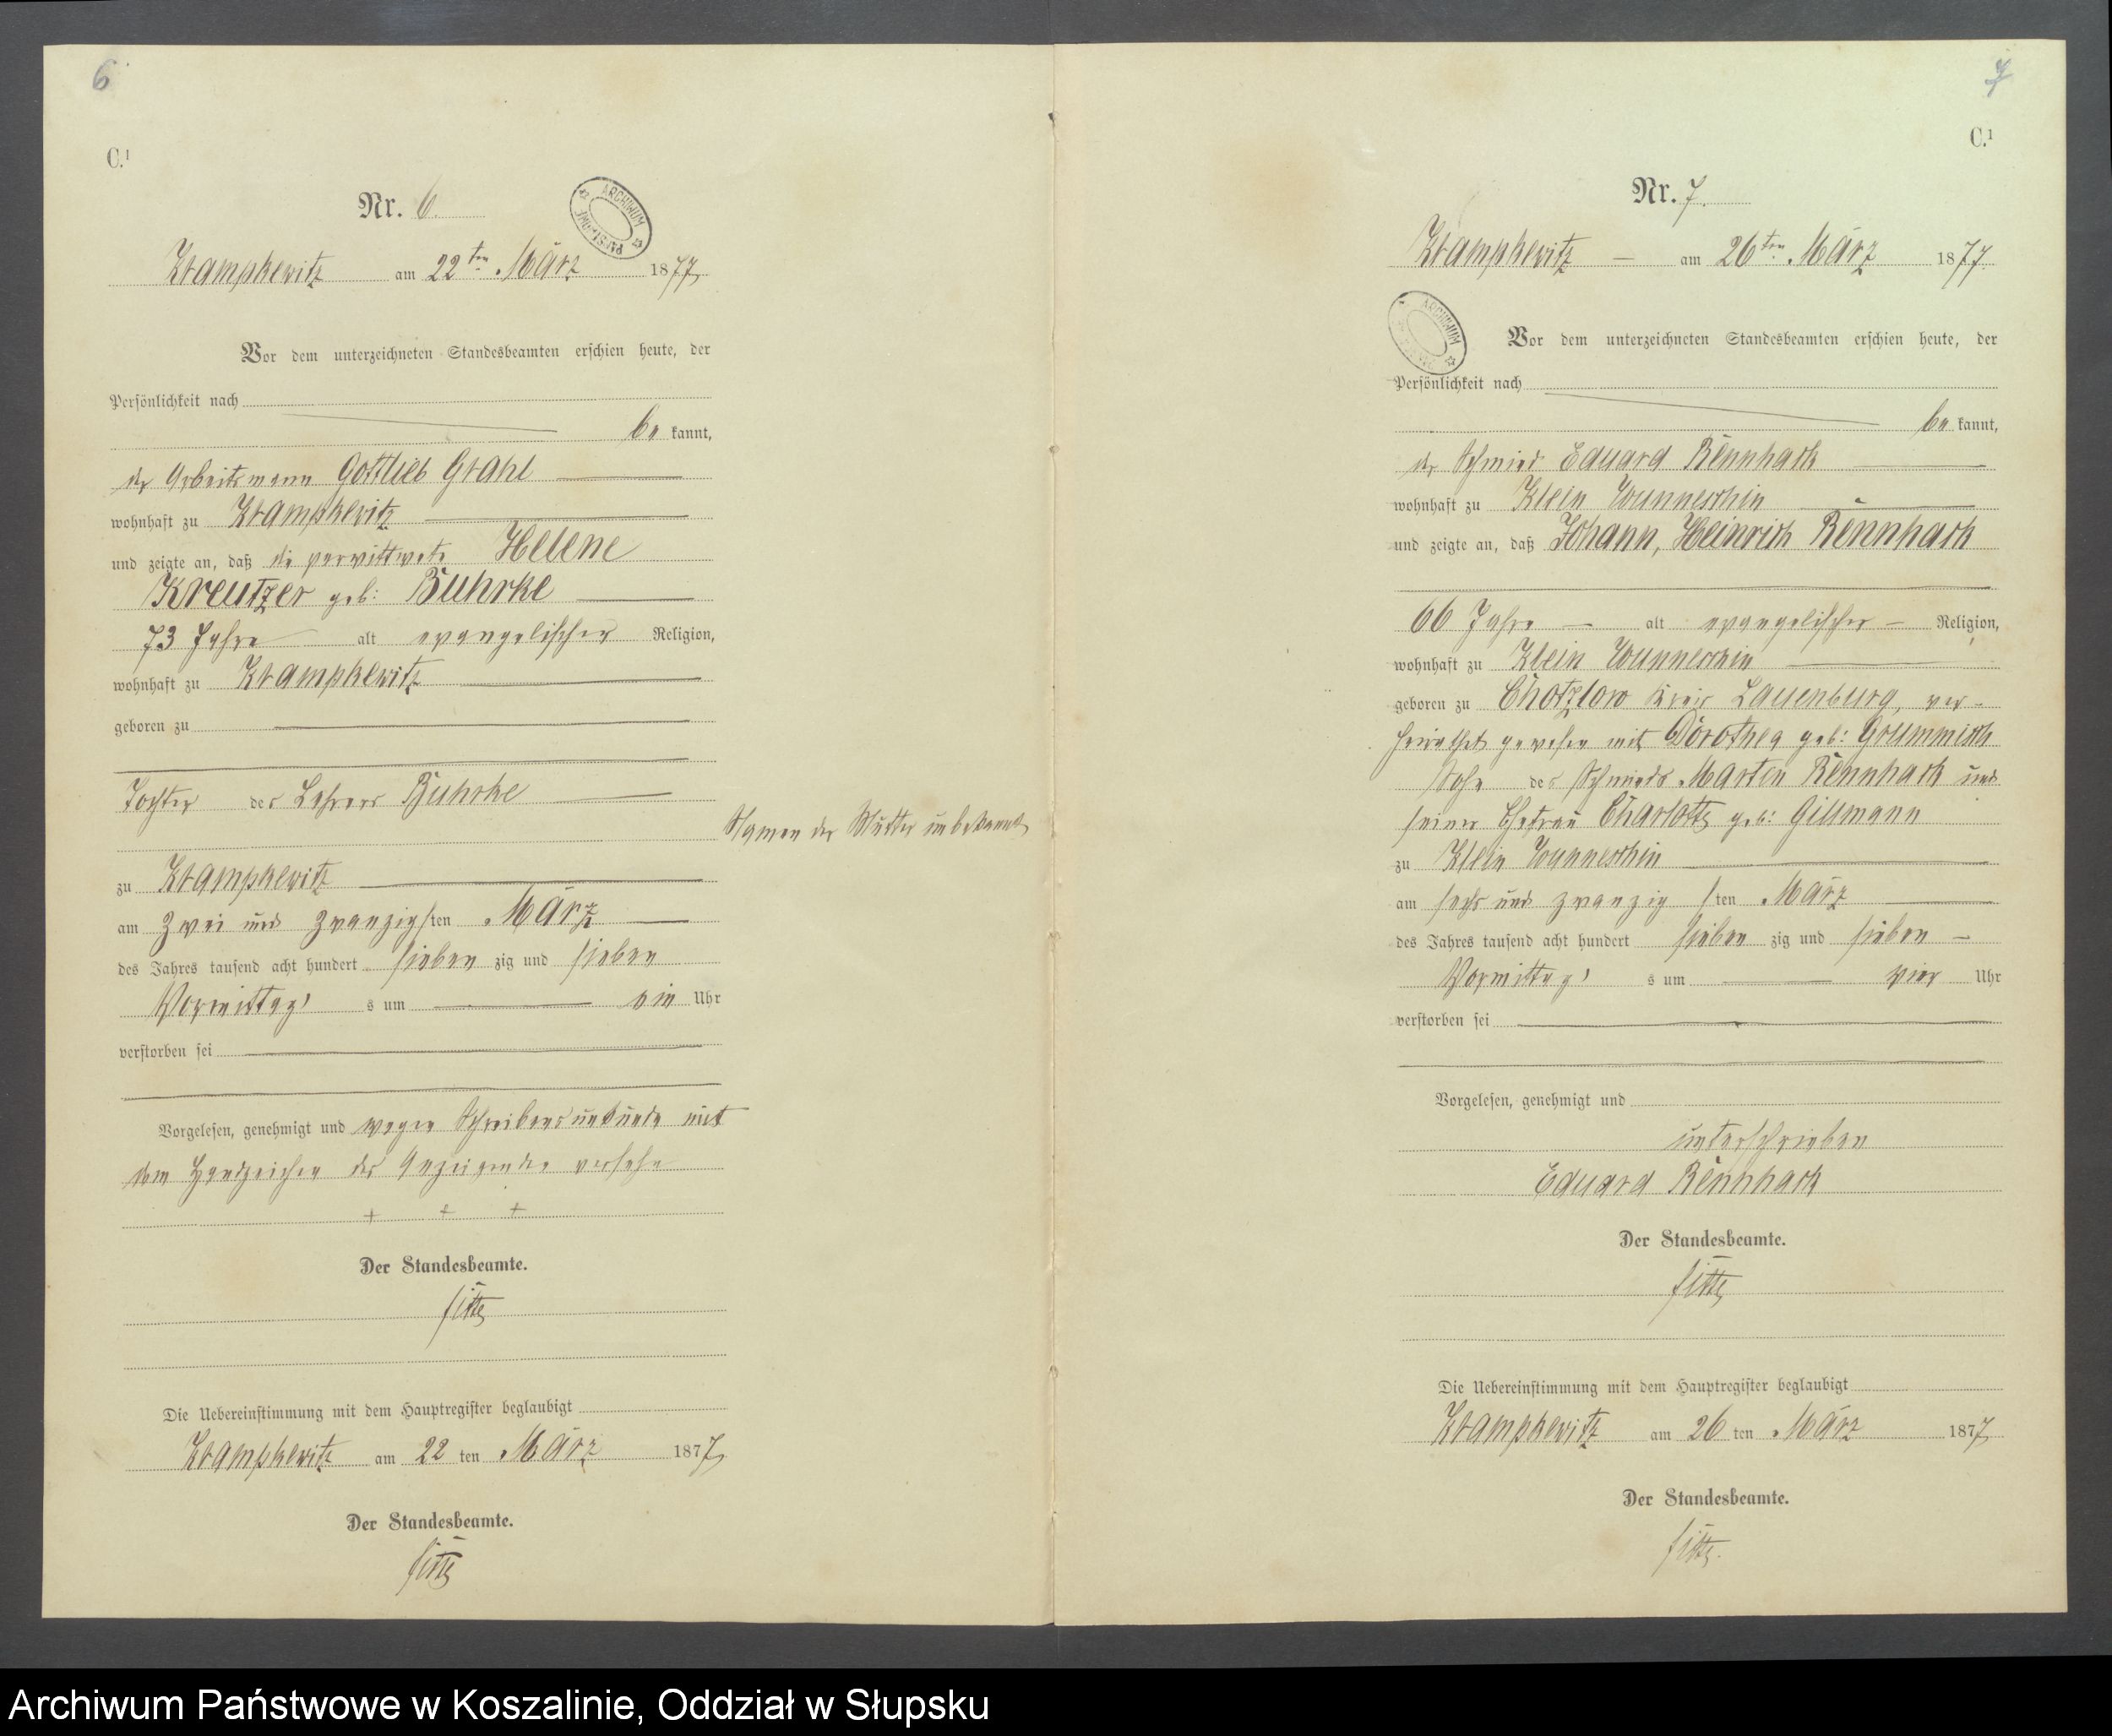 6
C.¹
Nr. 6.
ARCHIWUM
Krampkewitz am 22ten März 1877
Vor dem unterzeichneten Standesbeamten erschien heute, der
Persönlichkeit nach
be kannt,
der Arbeitsmann Gottlieb Grahl
wohnhaft zu Krampkewitz
und zeigte an, daß die verwittwete Helene
Kreutzer geb: Buhrke
73 Jahre alt evangelischer Religion,
wohnhaft zu Krampkewitz
geboren zu
Tochter des Lehrers Buhrke
Namen der Mutter unbekannt
zu Krampkewitz
am zwei und zwanzigsten März
des Jahres tausend acht hundert sieben zig und sieben
Vormittag s um ein Uhr
verstorben sei
Vorgelesen, genehmigt und wegen Schreibensunkunde mit
dem Handzeichen des Anzeigenden versehen
+ + +
Der Standesbeamte.
Die Uebereinstimmung mit dem Hauptregister beglaubigt
Krampkewitz am 22 ten März 1877
Der Standesbeamte.
7
C.¹
Nr. 7.
Krampkewitz am 26ten März 1877
ARCHIWUM
Vor dem unterzeichneten Standesbeamten erschien heute, der
Persönlichkeit nach
be kannt,
der Schmied Eduard Rennhack
wohnhaft zu Klein Wunneschin
und zeigte an, daß Johann, Heinrich Rennhack
66 Jahre alt evangelischer Religion,
wohnhaft zu Klein Wunneschin
geboren zu Chotzlow Kreis Lauenburg, ver-
heirathet gewesen mit Dorothea geb:
Sohn des Schmieds Marten Rennhack und
seiner Ehefrau Charlotte geb: Gillmann
zu Klein Wunneschin
am sechs und zwanzig sten März
des Jahres tausend acht hundert sieben zig und sieben
Vormittag s um vier Uhr
verstorben sei
Vorgelesen, genehmigt und
unterschrieben
Eduard Rennhack
Der Standesbeamte.
Die Uebereinstimmung mit dem Hauptregister beglaubigt
Krampkewitz am 26 ten März 1877
Der Standesbeamte.
Archiwum Państwowe w Koszalinie, Oddział w Słupsku